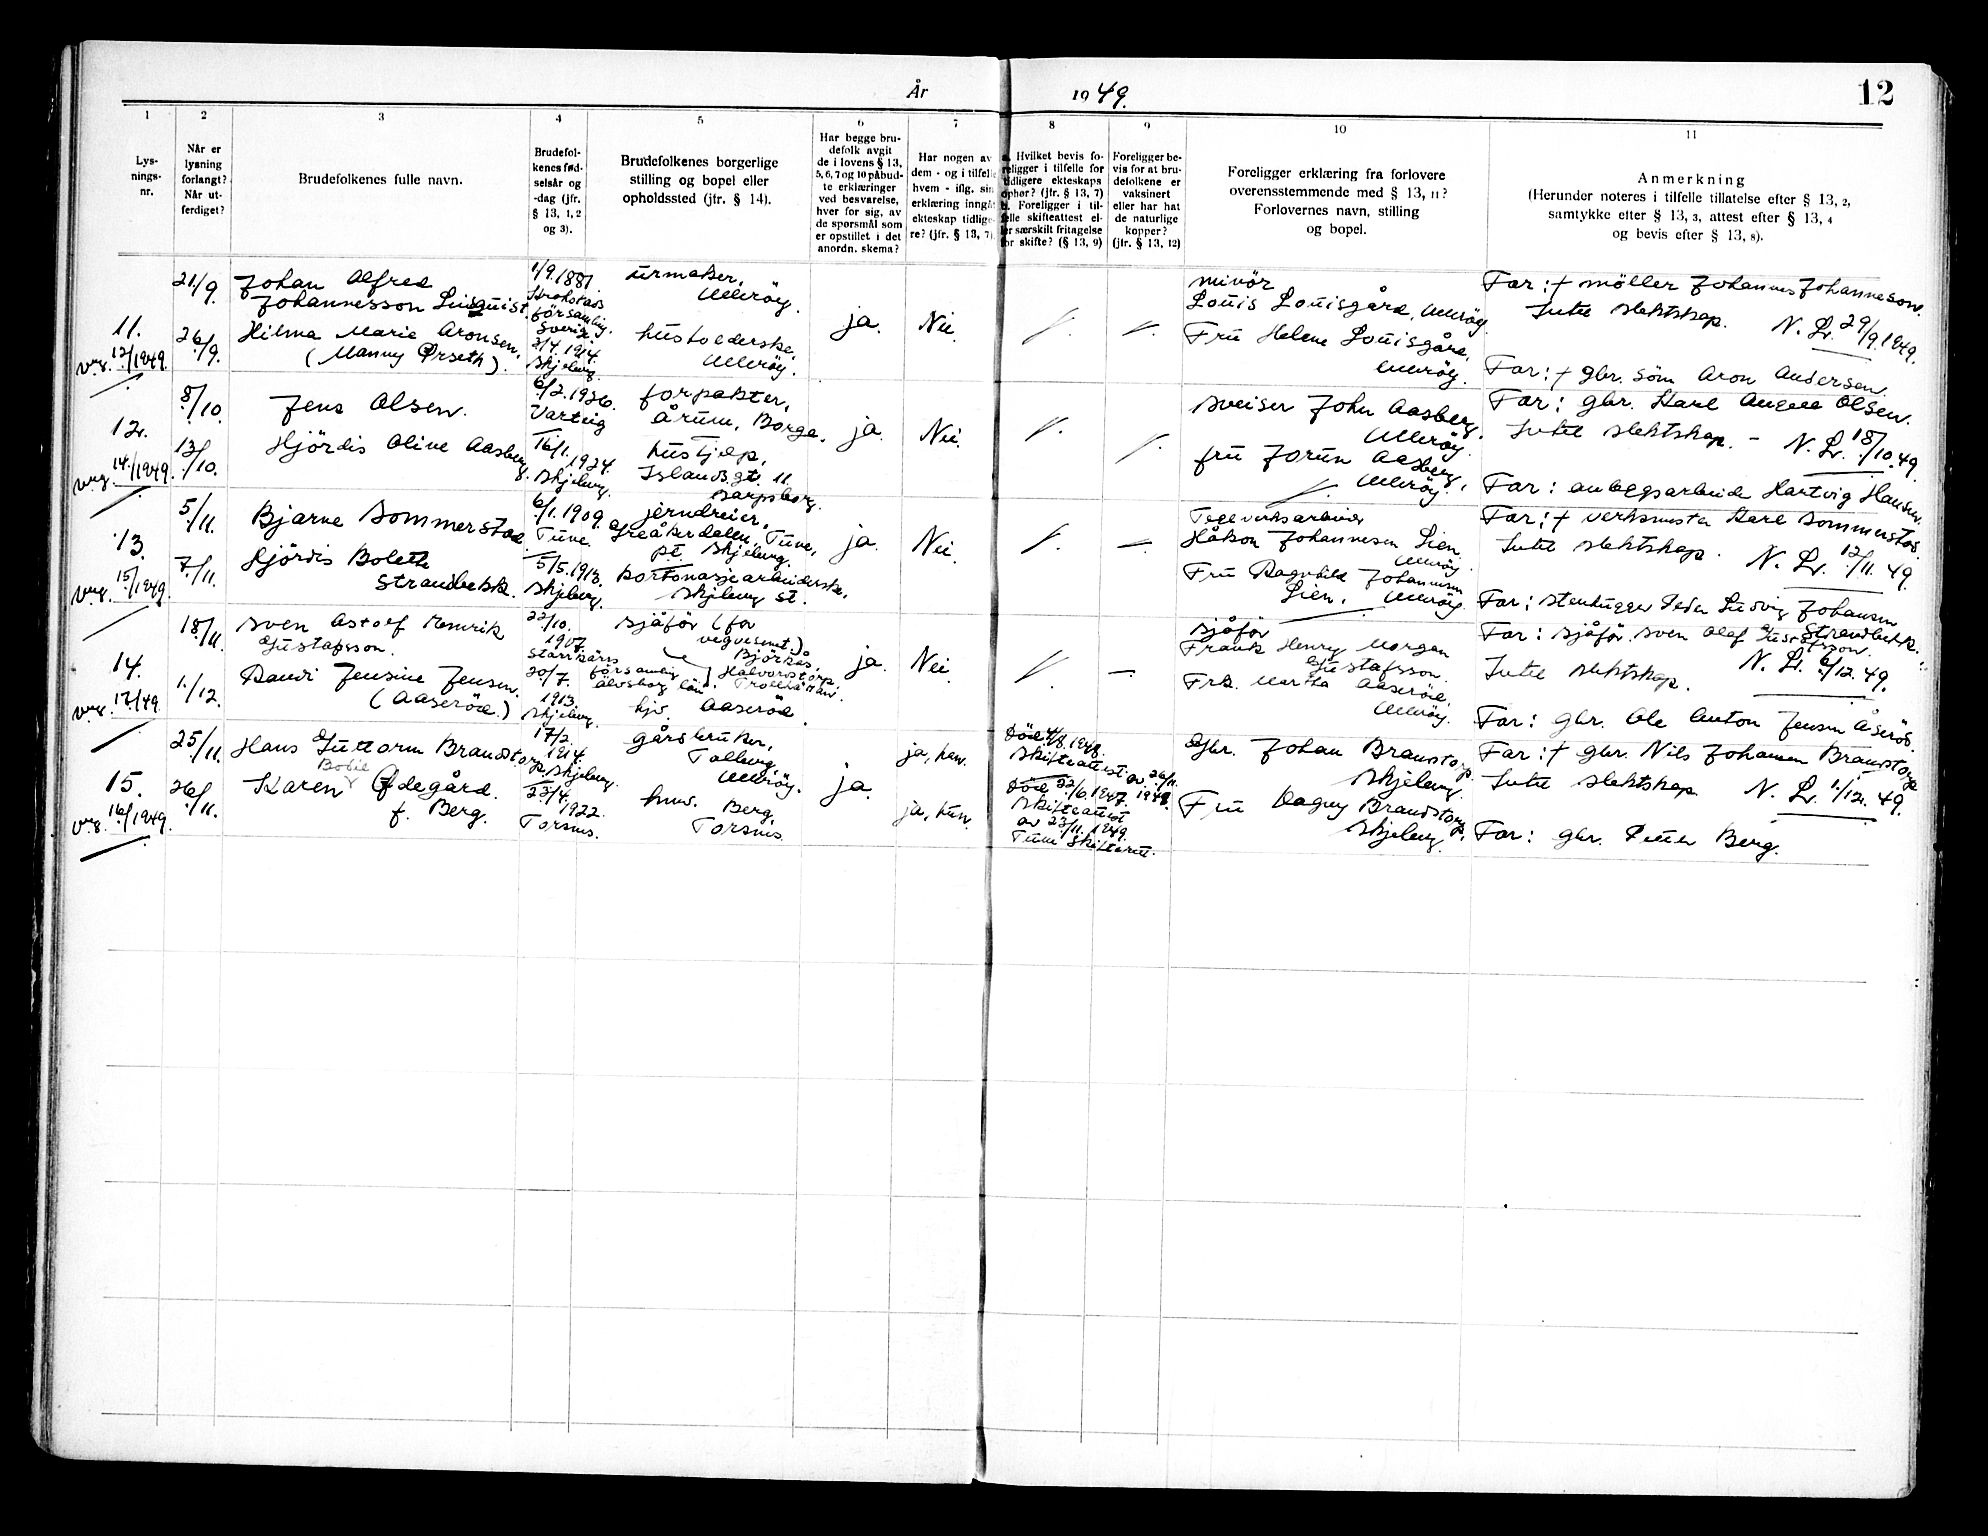 År 1949.
12
1
2
3
4
5
6
7
8
9
10
11
Lys-
nings-
nr.
Når er
lysning
forlangt?
Når ut-
ferdiget?
Brudefolkenes fulle navn.
Brudefol-
kenes fød-
selsår og
-dag (jfr.
§ 13, 1, 2
og 3).
Brudefolkenes borgerlige
stilling og bopel eller
opholdssted (jfr. § 14).
Har begge bru-
defolk avgit
de i lovens § 13,
5, 6, 7 og 10 påbud-
te erklæringer
ved besvarelse,
hver for sig, av
de spørsmål som
er opstillet i det
anordn. skema?
Har nogen av
dem - og i tilfelle
hvem - iflg. sin
erklæring inngåt
ekteskap tidlige-
re? (jfr. § 13, 7)
Hvilket bevis fo-
religger i tilfelle for
tidligere ekteskaps
ophør? (jfr. § 13, 7)
Foreligger i til-
felle skifteattest el-
ler særskilt fritagelse
for skifte? (§ 13, 9)
Foreligger be-
vis for at bru-
defolkene er
vaksinert
eller har hat
de naturlige
kopper?
(jfr. § 13, 12)
Foreligger erklæring fra forlovere
overensstemmende med § 13, 11?
Forlovernes navn, stilling
og bopel.
Anmerkning
(Herunder noteres i tilfelle tillatelse efter § 13, 2,
samtykke efter § 13, 3, attest efter § 13, 4
og bevis efter § 13, 8).
11.
12/1949.
21/9.
26/9.
Johan Alfred
Johannesson
Hilma Marie Aronsen,
1/9.1881.
församling,
Sverige
2/4.1914.
Skjeberg.
urmaker,
Ullerøy.
Ullerøy.
ja.
Nei.
minör
Louis Louisgård, Ullerøy.
Fru Helene Louisgård,
Ullerøy.
Far: † möller Johannes Johannesson.
Intet slektskap. N. L. 29/9.1949.
Far: † gbr. Aron Andersen.
12.
14/1949.
8/10.
13/10.
Jens Olsen.
Hjördis Olive Aasberg.
6/2.1926.
Varteig
16/1.1924.
Skjeberg.
forpakter,
Årum, Borge.
hushjelp,
Islandsgt. 11
Sarpsborg.
ja.
Nei.
sveiser John Aasberg,
Ullerøy.
fru Jorun Aasberg,
Ullerøy.
Far: gbr. Karl August Olsen.
Intet slektskap. - N. L. 18/10.49.
Far: anleggsarbeider Hartvig Hansen.
13.
15/1949.
5/11.
7/11.
Bjarne Sommerstad.
Hjördis Bolette
Strandbekk.
6/1.1909.
Tune.
5/5.1913.
Skjeberg.
jerndreier,
Greåkerdalen, Tune,
pt. Skjeberg.
kartonasjearbeiderske,
Skjeberg st.
ja.
Nei.
Teglverksarbeider
Håkon Johannesen Lien,
Ullerøy.
Fru Ragnhild Johannesen
Lien, Ullerøy.
Far: † verksmester Karl Sommerstad.
Intet slektskap. N. L. 12/11.49.
Far: stenhugger Peder Ludvig Johansen
Strandbekk.
14.
17/49.
18/11.
1/12.
Sven Astolf Henrik
Gustafsson.
Randi Jensine Jensen.
(Aaseröd.)
22/10.
1907.
Starrkärrs
församling
Älvsborg län.
20/7.
1913
Skjeberg.
sjåför (for
vegvesenet.)
Björkås,
Halvorstorp
Trollhättan.
hjv. Aaseröd.
ja.
Nei.
sjåför
Frank Henry Morgan
Gustafsson.
Frk. Martha Aaseröd,
Ullerøy.
Far: sjåför Sven Olof Gustafsson.
Intet slektskap. N. L. 6/12.49.
Far: gbr. Ole Anton Jensen Åseröd.
15.
16/1949.
25/11.
26/11.
Hans Guttorm Brandstorp,
Bodil
Karen Ødegård.
f. Berg.
17/2.
1914.
Skjeberg.
23/4.
1922.
Torsnes.
gårdbruker,
Tolleby,
Ullerøy.
husm. Berg,
Torsnes.
ja.
ja, han.
ja, hun.
Död 4/8.1948.
Skifteattest av 26/11.
1949.
Död 22/6.1947.
Skifteattest
av 23/11.1949.
Tune Skifterett.
Gbr. Johan Brandstorp,
Skjeberg.
Fru Dagny Brandstorp,
Skjeberg.
Far: † gbr. Nils Johansen Brandstorp.
Intet slektskap N. L. 1/12.49.
Far: gbr. Petter Berg.